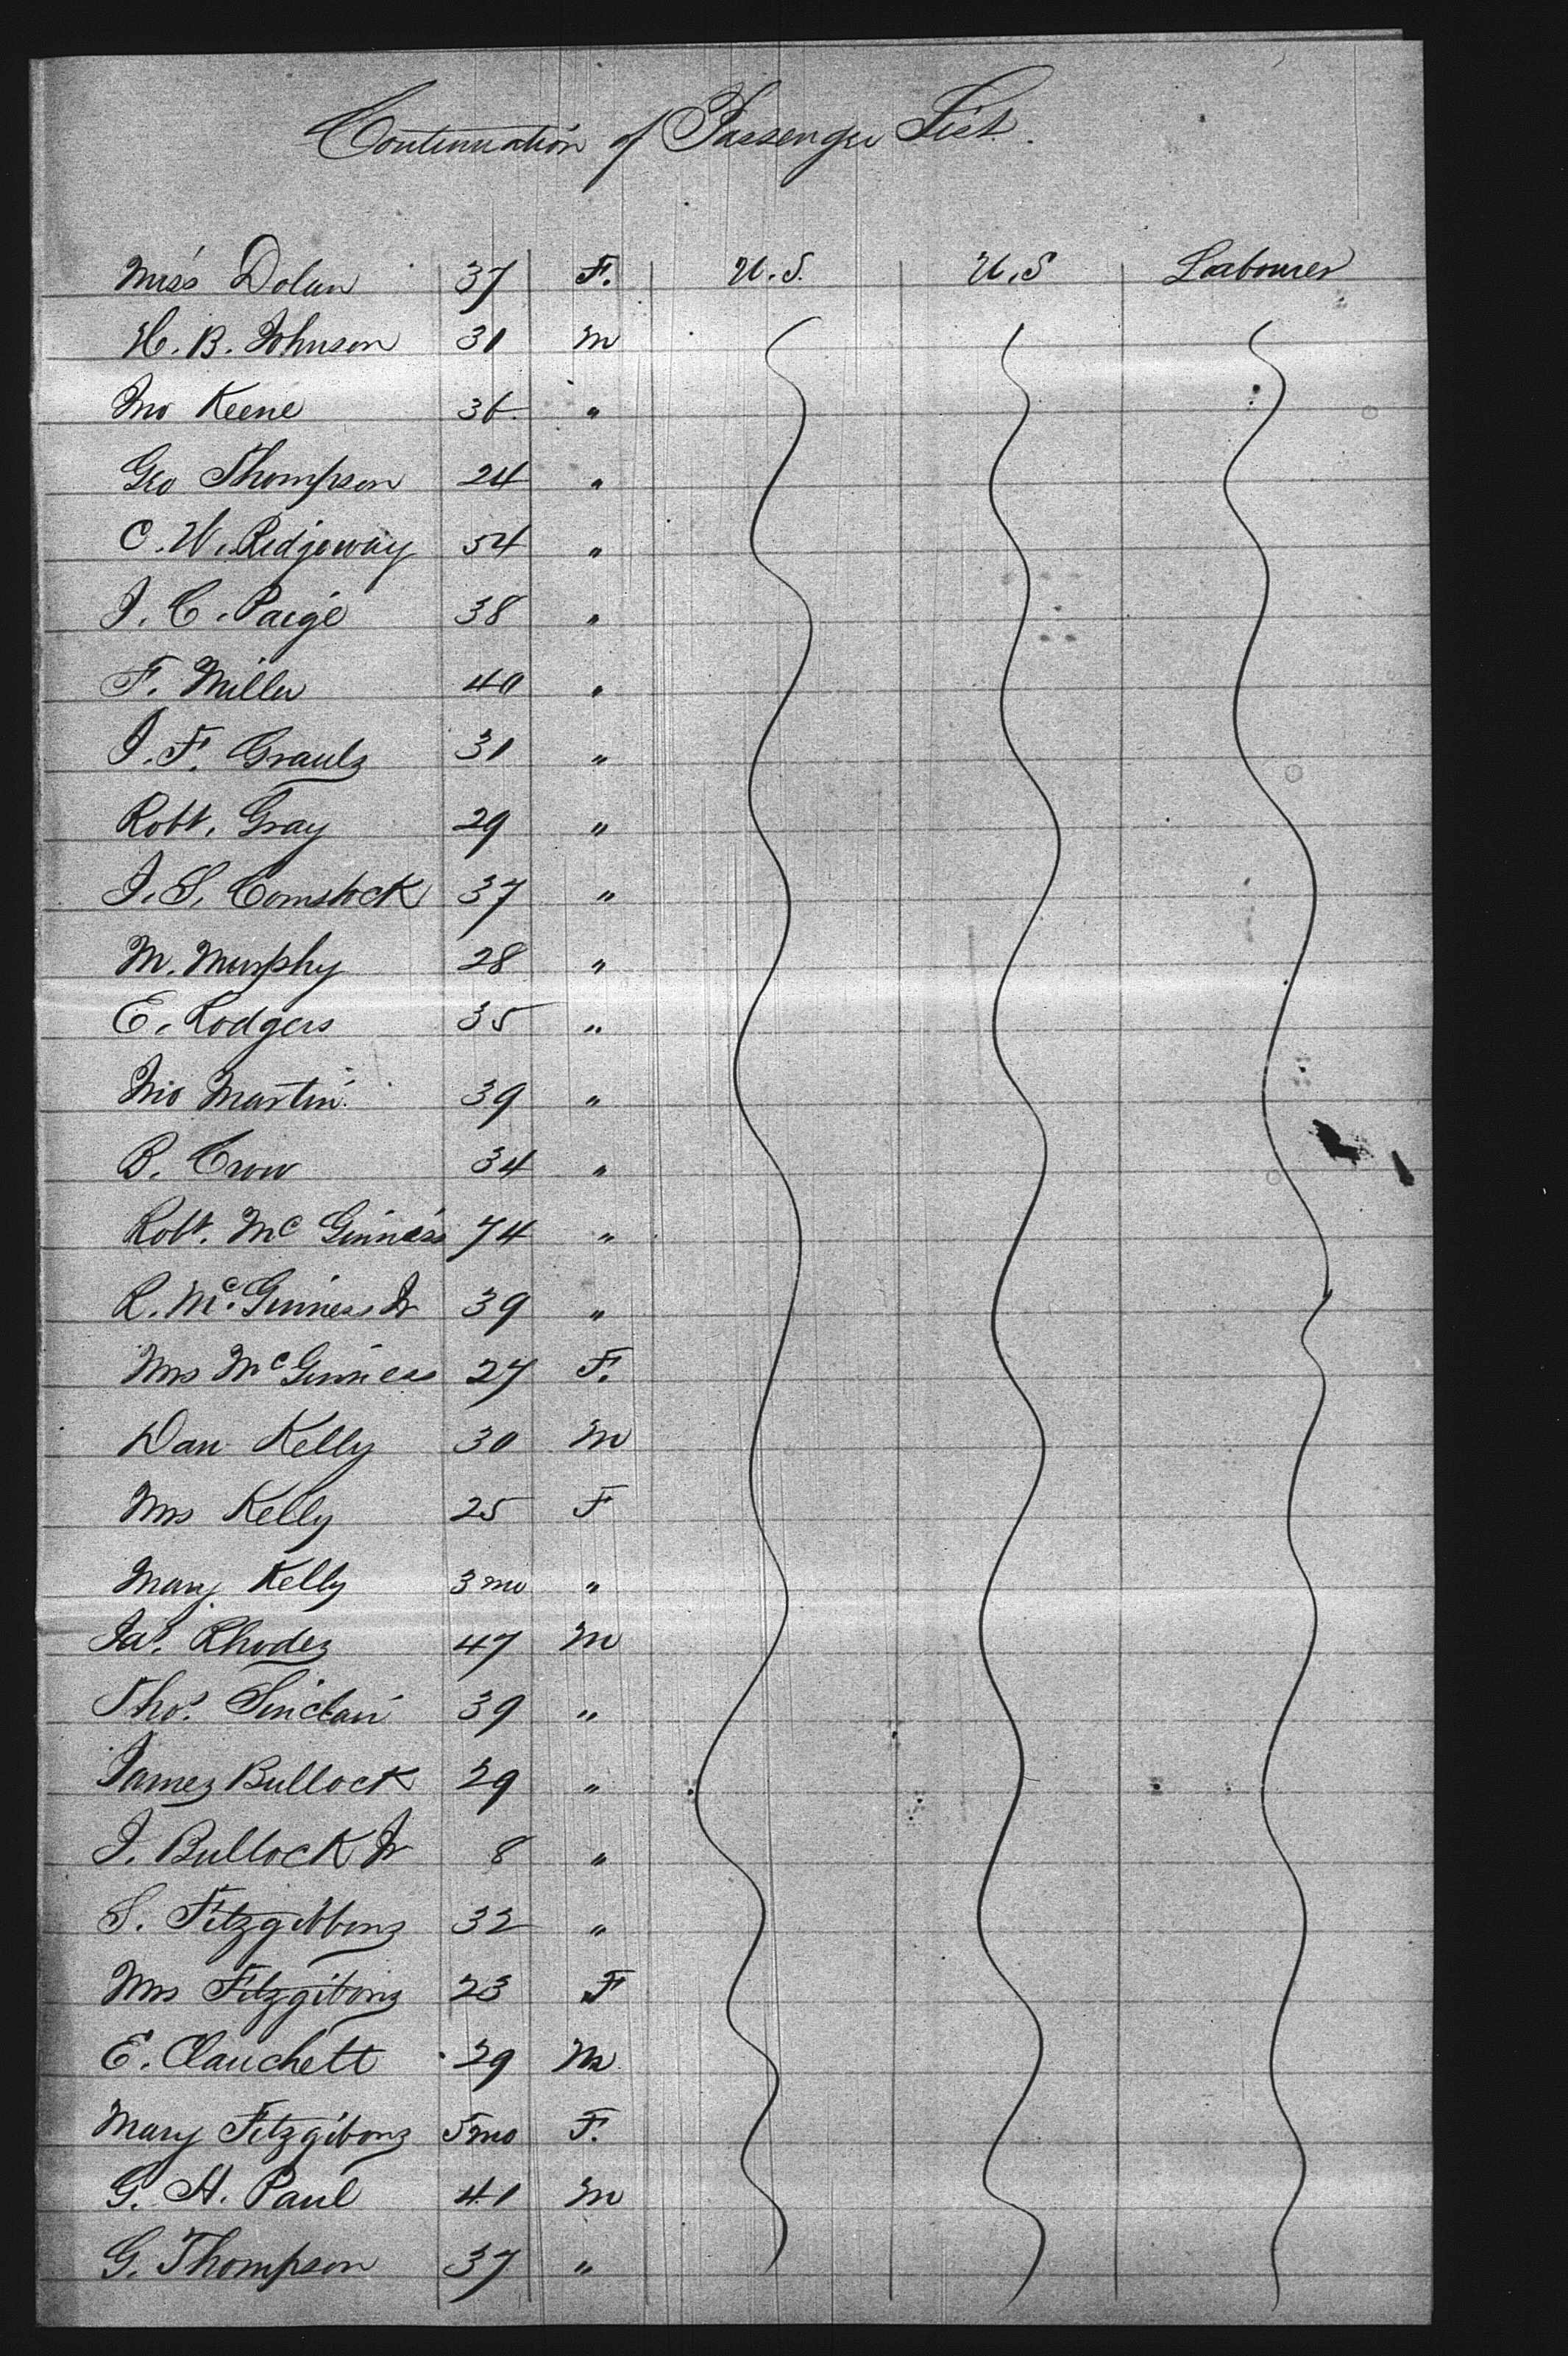 Continuation of Passenger List.
Miss Dolan 37 F. U.S. U.S Labourer
H. B. Johnson 31 m
Jno Keene 36 "
Geo Thompson 24 "
C. W. Ridgeway 54 "
J. C. Paige 38 "
F. Miller 40 "
J. F. Graulz 31 "
Robt. Gray 29 "
J. S. Comstock 37 "
M. Murphy 28 "
E. Rodgers 35 "
Jno Martin 39 "
B. Crow 34 "
Robt. Mc Guiness 74 "
R. Mc. Guiness Jr 39 "
Mrs McGuiness 27 F.
Dan Kelly 30 m
Mrs Kelly 25 F
Mary Kelly 3 mo "
Jas. Rhodes 47 m
Thos. Sinclair 39 "
James Bullock 29 "
J. Bullock Jr 8 "
S. Fitzgibbons 32 "
Mrs Fitzgibons 23 F
E. Clauchett 29 m
Mary Fitzgibons 5mo F.
G. H. Paul 41 m
G. Thompson 37 "